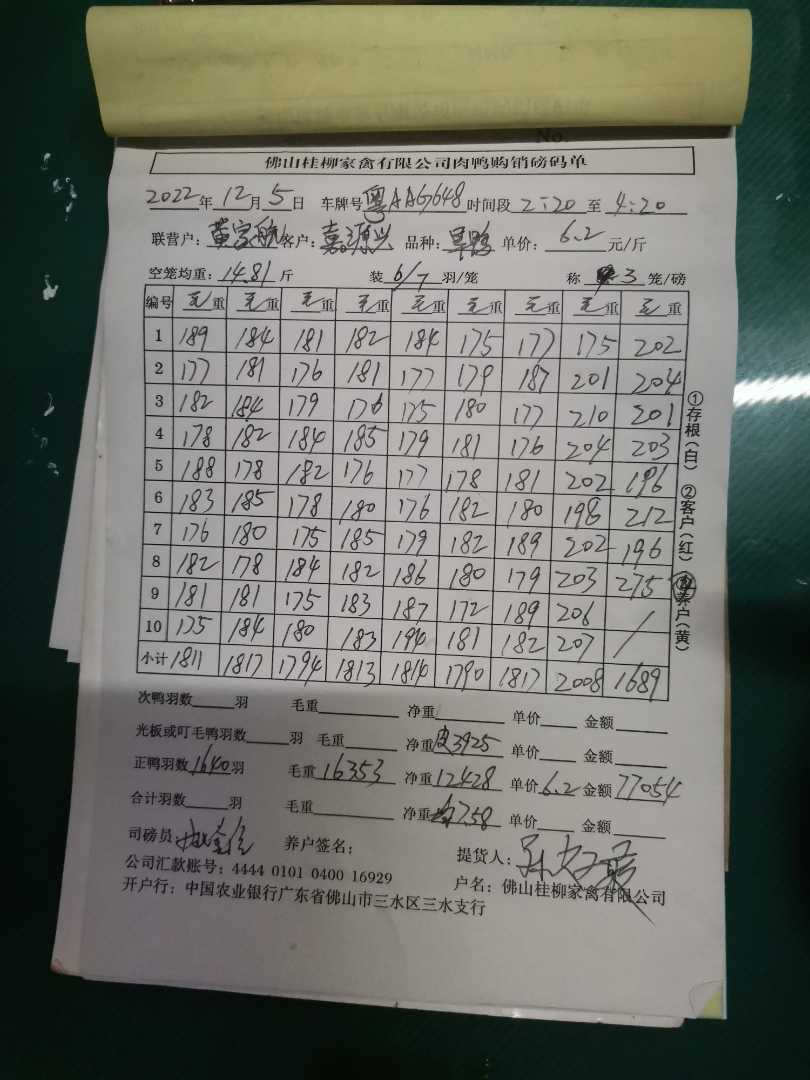 No.
佛山桂柳家禽有限公司肉鸭购销磅码单
2022年12月5日 车牌号粤AAG648时间段2:20至4:20
联营户:黄家航客户:嘉源兴 品种:旱鸭 单价:6.2元/斤
空笼均重:14.81斤 装6/7羽/笼 称3笼/磅
编号 毛重 毛重 毛重 毛重 毛重 毛重 毛重 毛重 毛重
1 189 184 181 182 184 175 177 175 202
2 177 181 176 181 177 179 187 201 204
3 182 184 179 176 175 180 177 210 201
4 178 182 184 185 179 181 176 204 203
5 188 178 182 176 177 178 181 202 196
6 183 185 178 180 176 182 180 198 212
7 176 180 175 185 179 182 189 202 196
8 182 178 184 182 186 180 179 203 275
9 181 181 175 183 187 172 189 206 /
10 175 184 180 183 194 181 182 207 /
小计 1811 1817 1794 1813 1814 1790 1817 2008 1689
①存根(白) ②客户(红) ③养户(黄)
次鸭羽数 羽 毛重 净重 单价 金额
光板或叮毛鸭羽数 羽 毛重 净重皮3925 单价 金额
正鸭羽数1640羽 毛重16353 净重12428 单价6.2 金额77054
合计羽数 羽 毛重 净重均7.58 单价 金额
司磅员: 养户签名: 提货人:
公司汇款账号:4444 0101 0400 16929 户名:佛山桂柳家禽有限公司
开户行:中国农业银行广东省佛山市三水区三水支行